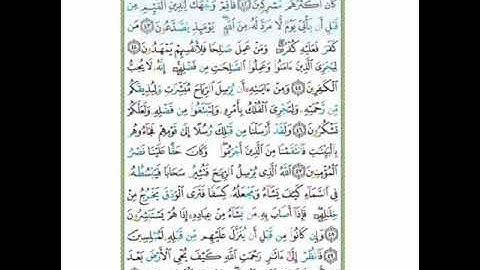 كَانَ أَكْثَرُهُم مُّشْرِكِينَ ۝٤٢ فَأَقِمْ وَجْهَكَ لِلدِّينِ الْقَيِّمِ مِن
قَبْلِ أَن يَأْتِيَ يَوْمٌ لَّا مَرَدَّ لَهُ مِنَ اللَّهِ يَوْمَئِذٍ يَصَّدَّعُونَ ۝٤٣ مَن
كَفَرَ فَعَلَيْهِ كُفْرُهُ وَمَنْ عَمِلَ صَالِحًا فَلِأَنفُسِهِمْ يَمْهَدُونَ ۝٤٤
لِيَجْزِيَ الَّذِينَ ءَامَنُوا وَعَمِلُوا الصَّالِحَاتِ مِن فَضْلِهِ إِنَّهُ لَا يُحِبُّ
الْكَافِرِينَ ۝٤٥ وَمِنْ ءَايَاتِهِ أَن يُرْسِلَ الرِّيَاحَ مُبَشِّرَاتٍ وَلِيُذِيقَكُم
مِّن رَّحْمَتِهِ وَلِتَجْرِيَ الْفُلْكُ بِأَمْرِهِ وَلِتَبْتَغُوا مِن فَضْلِهِ وَلَعَلَّكُمْ
تَشْكُرُونَ ۝٤٦ وَلَقَدْ أَرْسَلْنَا مِن قَبْلِكَ رُسُلًا إِلَىٰ قَوْمِهِمْ فَجَاءُوهُم
بِالْبَيِّنَاتِ فَانتَقَمْنَا مِنَ الَّذِينَ أَجْرَمُوا وَكَانَ حَقًّا عَلَيْنَا نَصْرُ
الْمُؤْمِنِينَ ۝٤٧ اللَّهُ الَّذِي يُرْسِلُ الرِّيَاحَ فَتُثِيرُ سَحَابًا فَيَبْسُطُهُ
فِي السَّمَاءِ كَيْفَ يَشَاءُ وَيَجْعَلُهُ كِسَفًا فَتَرَى الْوَدْقَ يَخْرُجُ مِنْ
خِلَالِهِ فَإِذَا أَصَابَ بِهِ مَن يَشَاءُ مِنْ عِبَادِهِ إِذَا هُمْ يَسْتَبْشِرُونَ
۝٤٨ وَإِن كَانُوا مِن قَبْلِ أَن يُنَزَّلَ عَلَيْهِم مِّن قَبْلِهِ لَمُبْلِسِينَ
۝٤٩ فَانظُرْ إِلَىٰ ءَاثَارِ رَحْمَتِ اللَّهِ كَيْفَ يُحْيِي الْأَرْضَ بَعْدَ